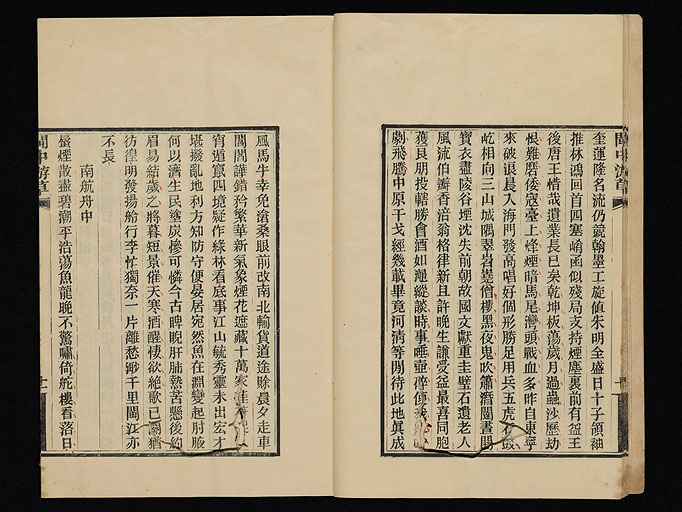 閩中游草
奎運隆名流仍競翰墨工旋値朱明全盛日十子領袖
推林鴻回首四塞崤函似殘局支持煙塵裏前有益王
後唐王惜哉遺業長已矣乾坤板蕩歲月過蟲沙歷劫
恨難磨倭寇臺上烽煙暗馬尾灣頭戰血多昨自東寧
來破浪晨入海門發高唱好個形勝足用兵五虎
屹相向三山城隅翠岧嶤僧樓黑夜鬼吹簫潛閩晝閉
寶衣盡陵谷堙沈失前朝故國文獻重圭璧石遺老人
風流伯瓣香涪翁格律新且許晚生謙受益最喜同胞
獲良朋投轄勝會酒如澠縱談時事唾壺碎
劇飛騰中原干戈經幾載畢竟河淸等閒待此地眞成
風馬牛幸免滄桑眼前改南北輸貨道途賒晨夕走車
閭閻譁錯矜繁華新氣象煙花遮藏十萬家
宵遁竄四境疑作綠林看底事江山毓秀靈未出宏才
堪撥亂地利方知防守便晏居宛然魚在淵變起肘腋
何以濟生民塗炭慘可憐今古睥睨肝肺熱苦懸後約
眉易結歲之將暮短景催天寒酒醒悽欲絕歌已闋猶
彷徨明發揚船行李忙獨奈一片離愁渺千里閩江亦
不長
南航舟中
蜃煙散盡碧潮平浩蕩魚龍晚不驚嘯倚舵樓看落日
閩中游草
十一